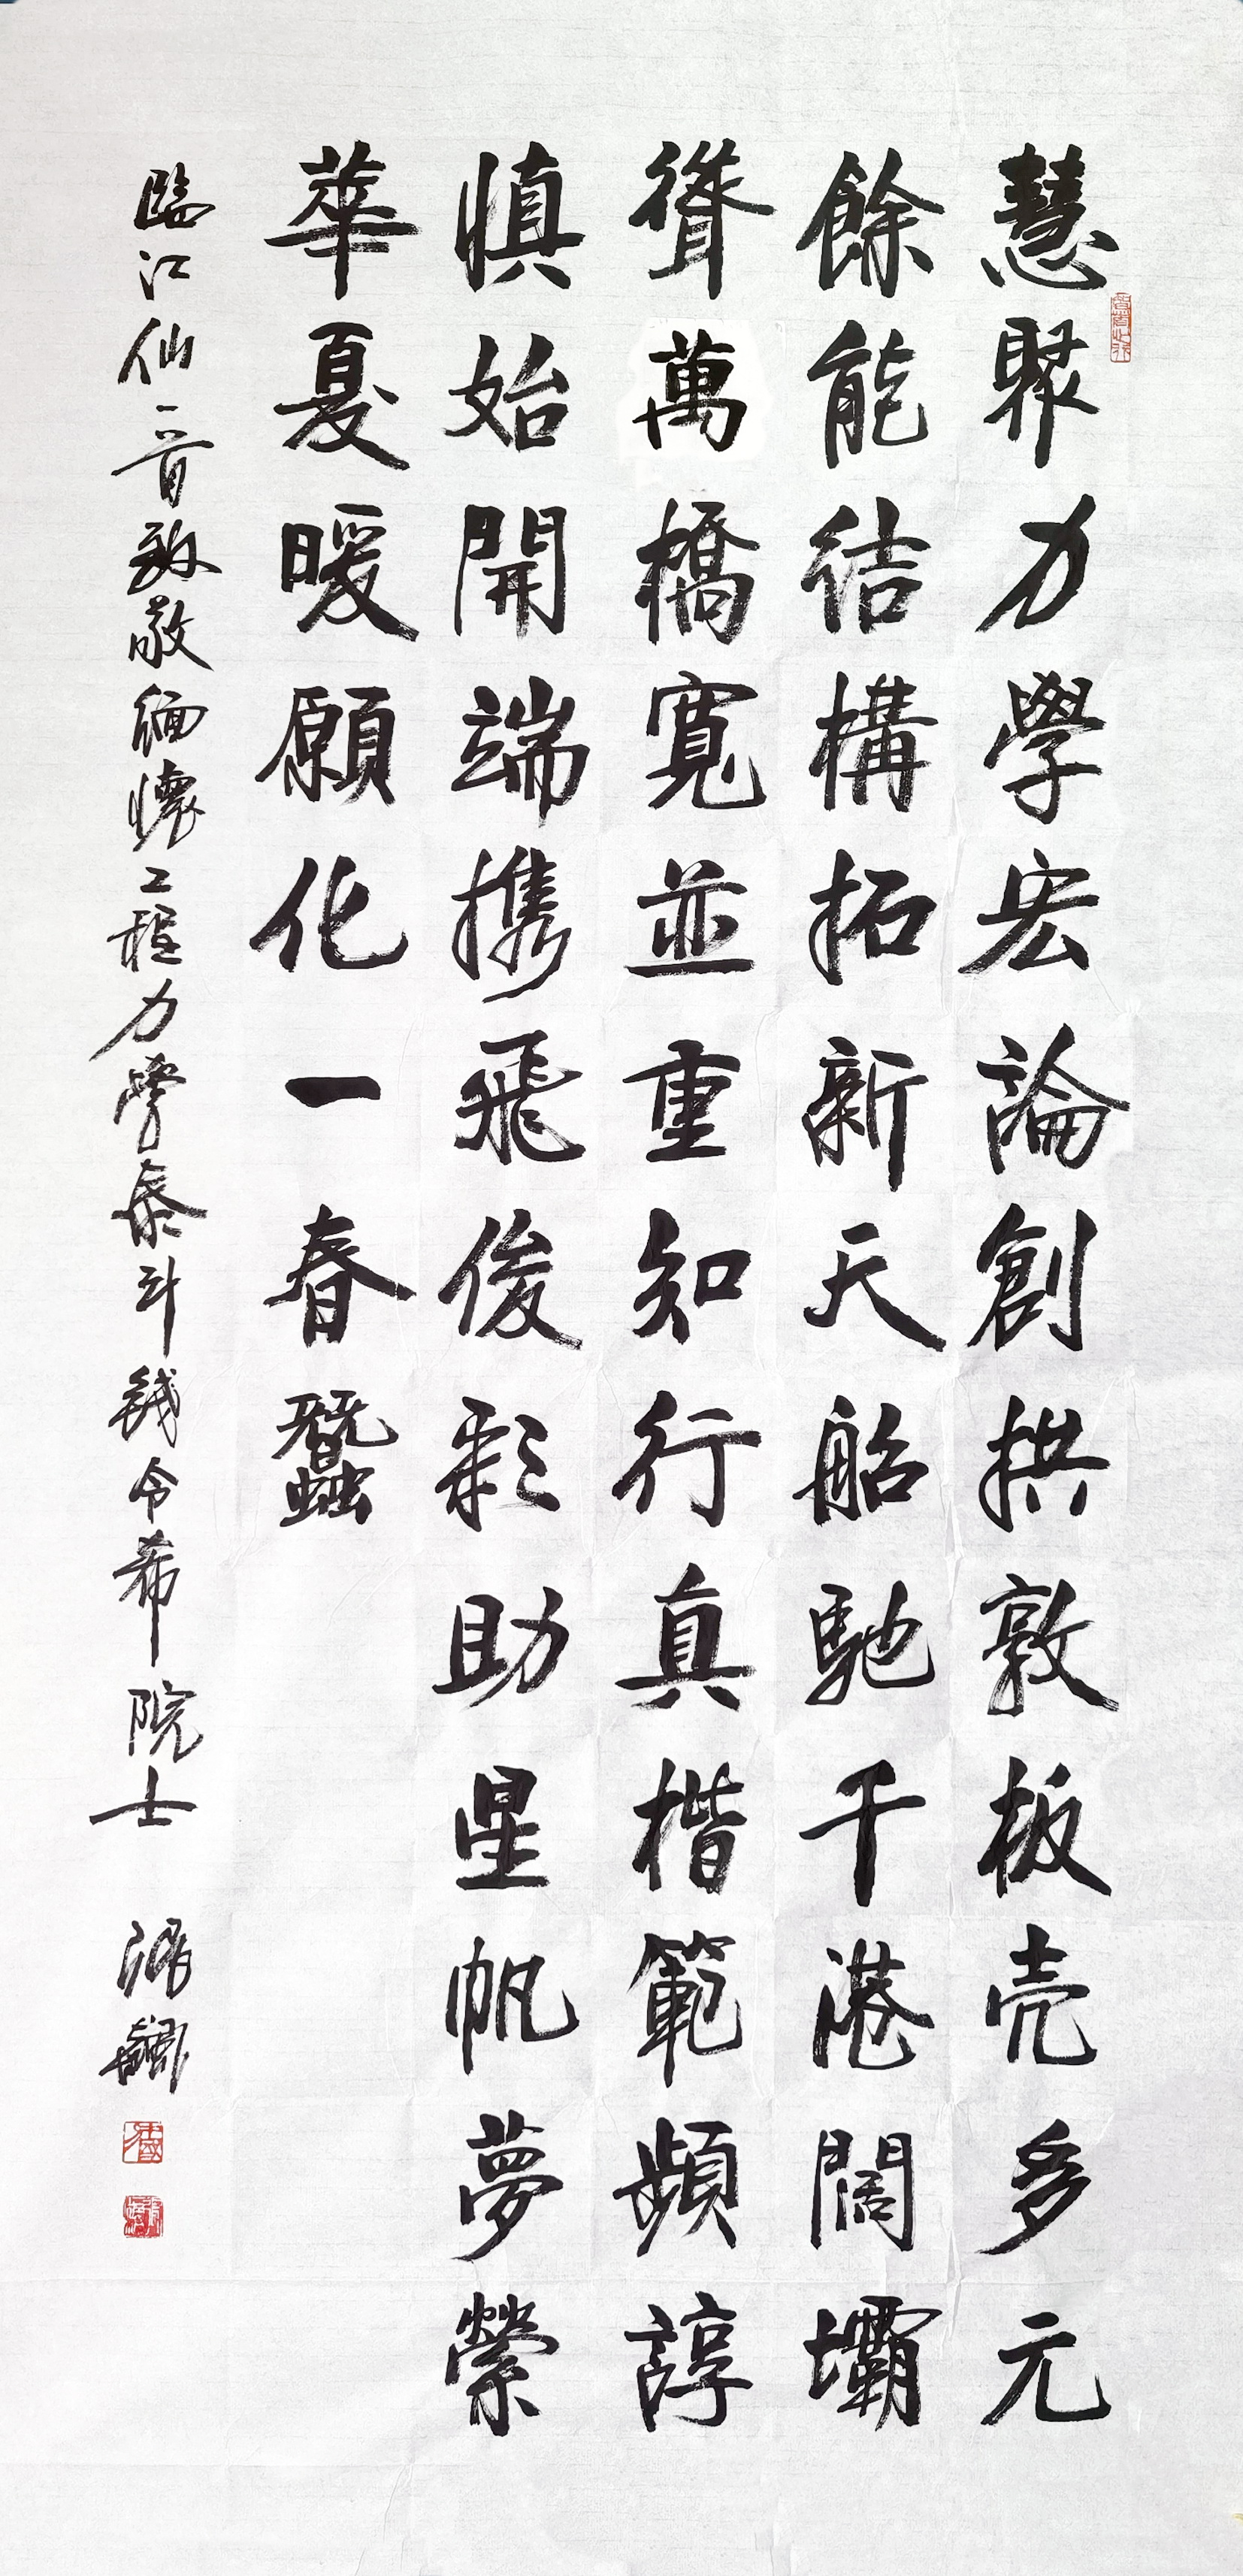 慧聚力學宏論創拱敦板壳多元
餘能结構拓新天船馳千港闊壩
聳萬橋寬並重知行真楷範頻諄
慎始開端携飛俊彩助星帆夢縈
華夏暖願化一春蠶
临江仙一首致敬缅懷工程力學泰斗钱令希院士